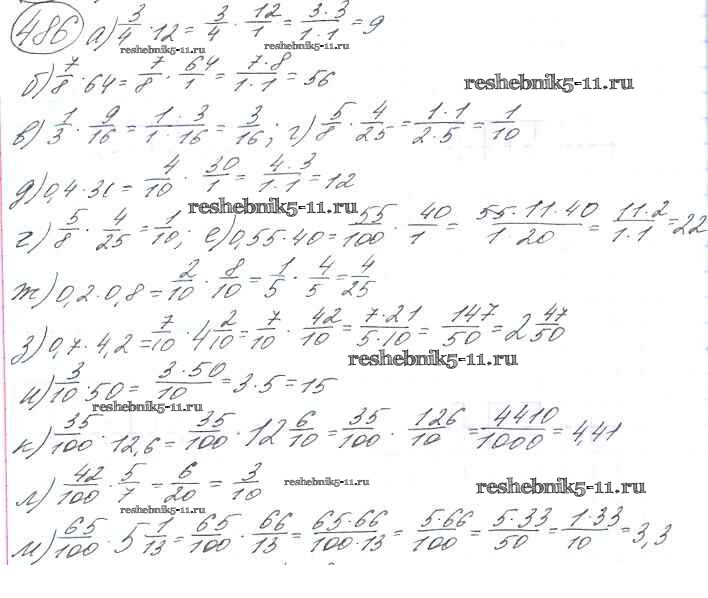 486 а) 3/4 · 12 = 3/4 · 12/1 = 3·3/1·1 = 9
reshebnik5-11.ru reshebnik5-11.ru
б) 7/8 · 64 = 7/8 · 64/1 = 7·8/1·1 = 56
reshebnik5-11.ru
в) 1/3 · 9/16 = 1·3/1·16 = 3/16; г) 5/8 · 4/25 = 1·1/2·5 = 1/10
д) 0,4·30 = 4/10 · 30/1 = 4·3/1·1 = 12
reshebnik5-11.ru
г) 5/8 · 4/25 = 1/10; е) 0,55·40 = 55/100 · 40/1 = 55·11·40/1·20 = 11·2/1·1 = 22
ж) 0,2·0,8 = 2/10 · 8/10 = 1/5 · 4/5 = 4/25
з) 0,7·4,2 = 7/10 · 4 2/10 = 7/10 · 42/10 = 7·21/5·10 = 147/50 = 2 47/50
reshebnik5-11.ru
и) 3/10 · 50 = 3·50/10 = 3·5 = 15
reshebnik5-11.ru
к) 35/100 · 12,6 = 35/100 · 12 6/10 = 35/100 · 126/10 = 4410/1000 = 4,41
л) 42/100 · 5/7 = 6/20 = 3/10
reshebnik5-11.ru reshebnik5-11.ru
reshebnik5-11.ru
м) 65/100 · 5 1/13 = 65/100 · 66/13 = 65·66/100·13 = 5·66/100 = 5·33/50 = 1·33/10 = 3,3